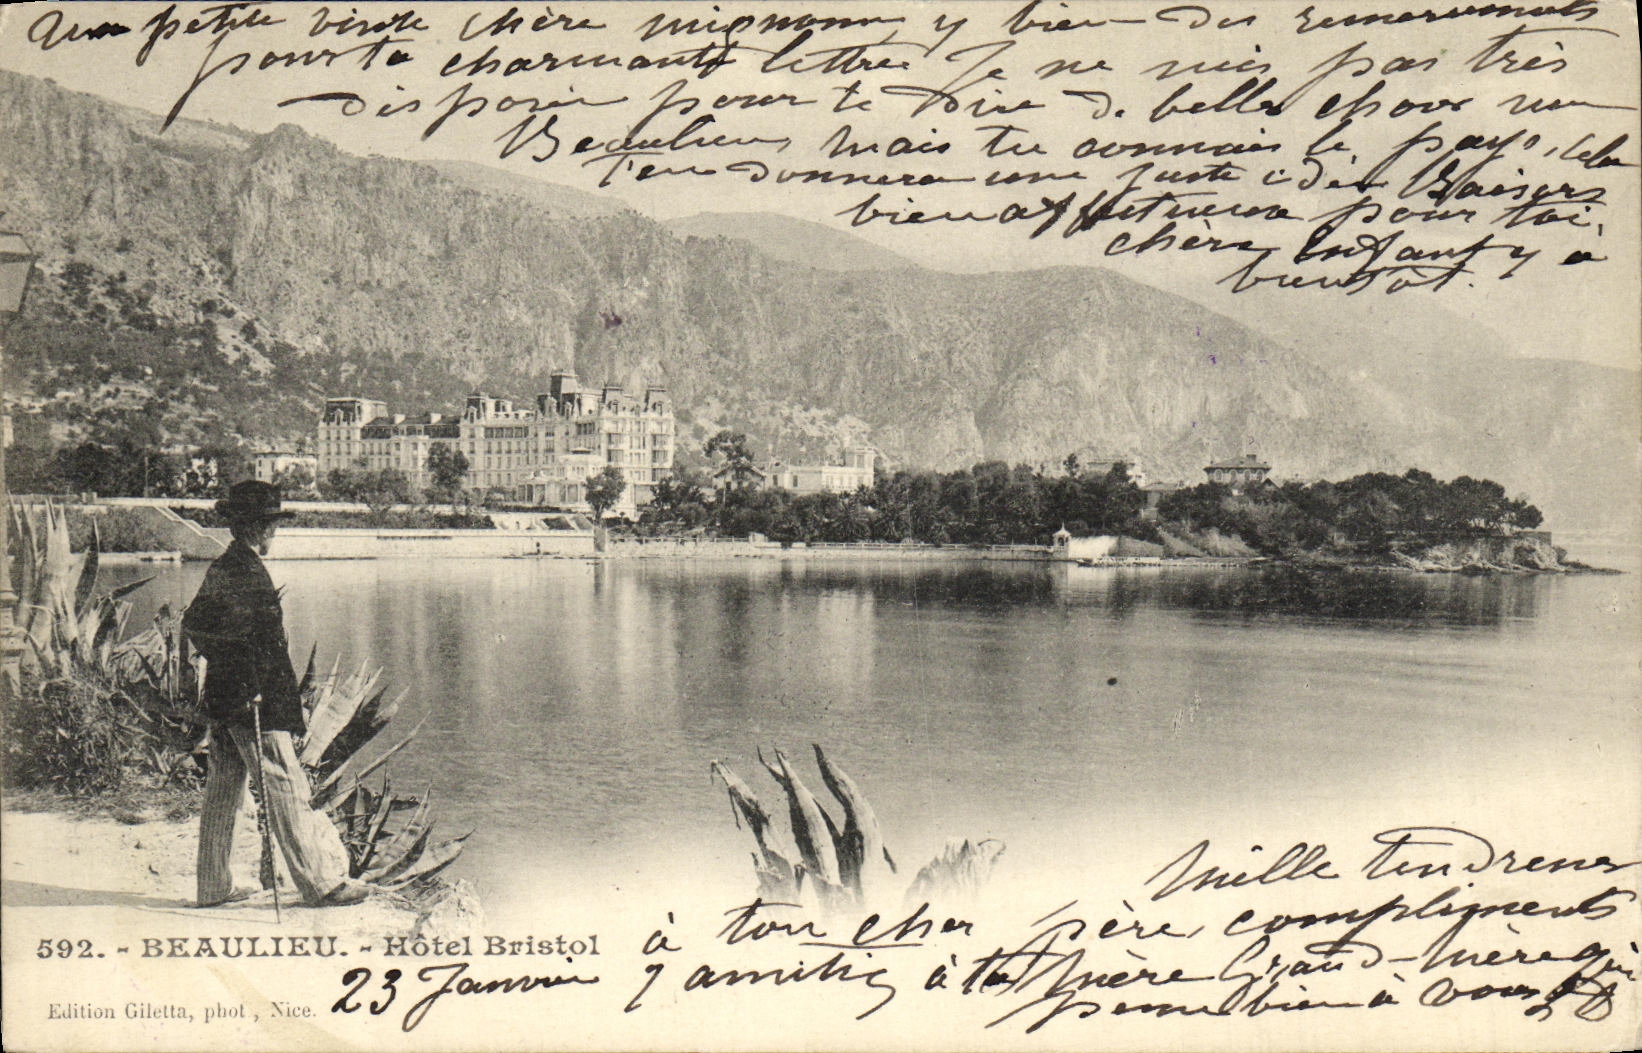 Une petite visite chère mignonne, y bien des remerciements
pour ta charmante lettre Je ne suis pas très
disposée pour te dire de belles choses sur
Beaulieu, mais tu connais le pays, cela
t'en donnera une juste idée Baisers
bien affectueux pour toi,
chère Enfant y à
bientôt.
Mille tendresses
à ton cher père, compliments
y amitiés à ta Mère Grand-mère qui
pense bien à vous
592. - BEAULIEU. - Hôtel Bristol
23 Janvier
Edition Giletta, phot, Nice.